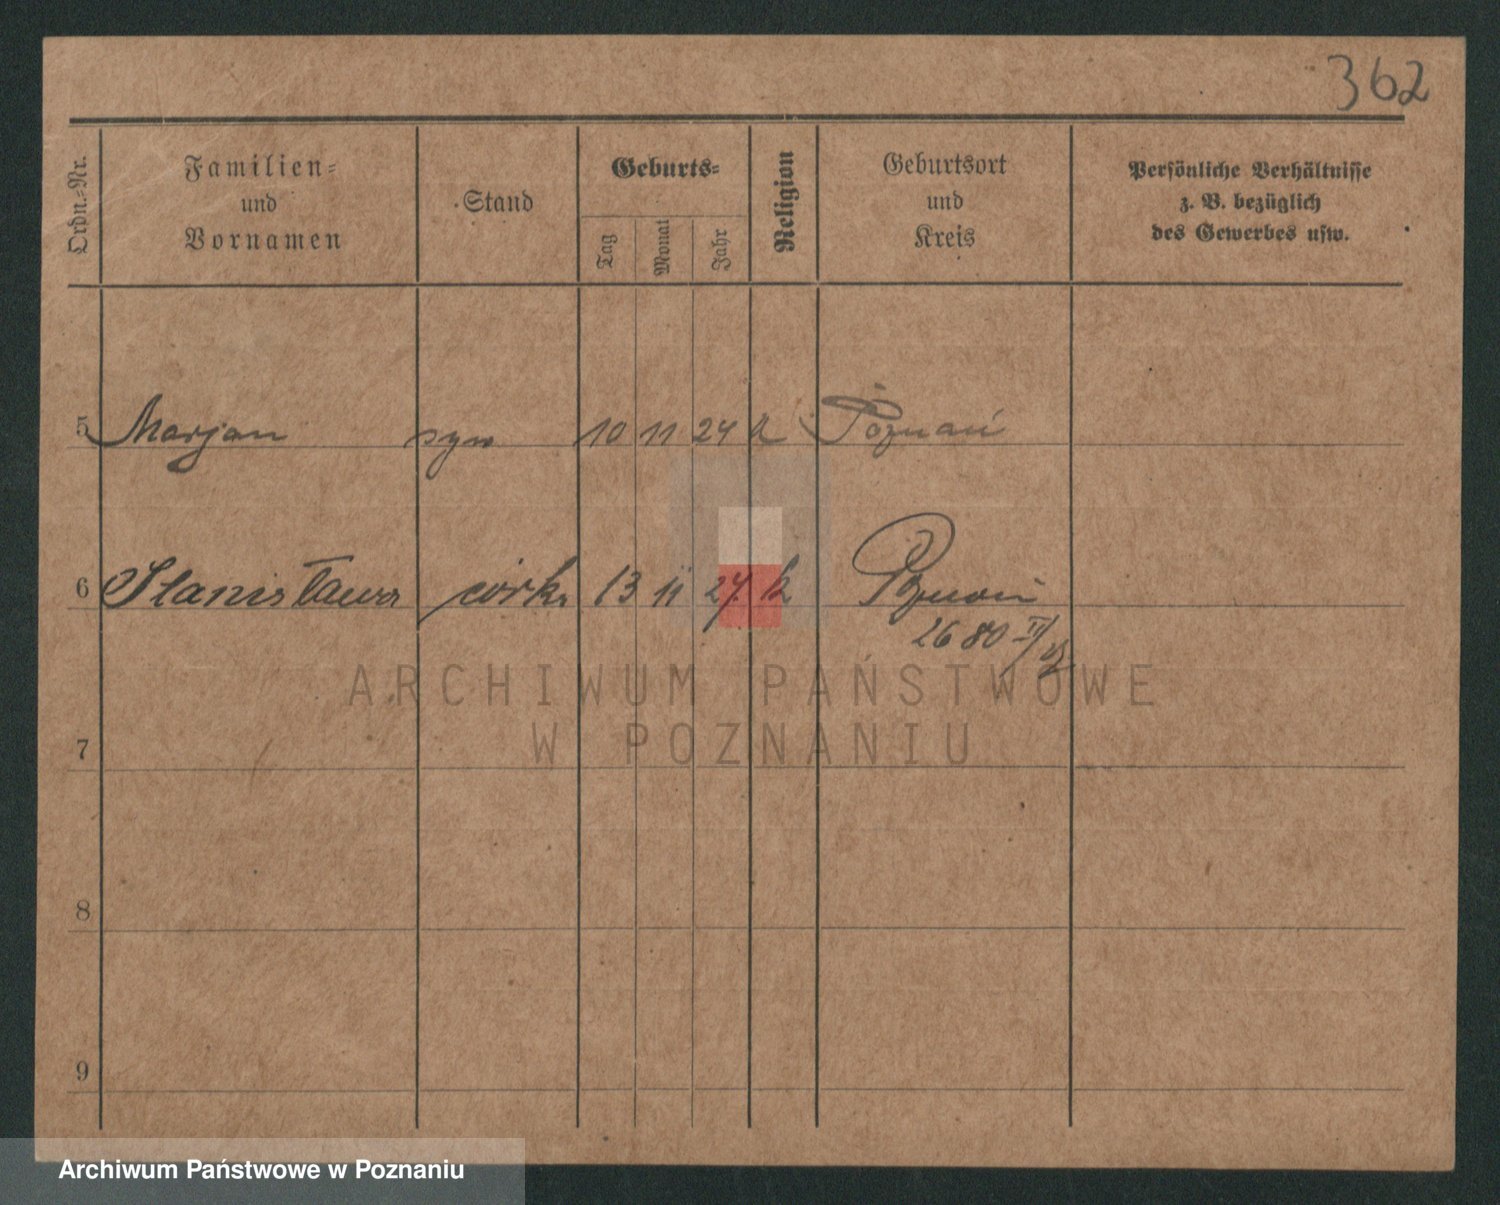 362
Ordn.-Nr.
Familien-
und
Vornamen
Stand
Geburts-
Tag
Monat
Jahr
Religion
Geburtsort
und
Kreis
Persönliche Verhältnisse
z. B. bezüglich
des Gewerbes usw.
5 Marjan syn 10 11 24 k Poznań
6 Stanisława córka 13 11 27. k Poznań
2680 II/
7
8
9
ARCHIWUM PAŃSTWOWE
W POZNANIU
Archiwum Państwowe w Poznaniu